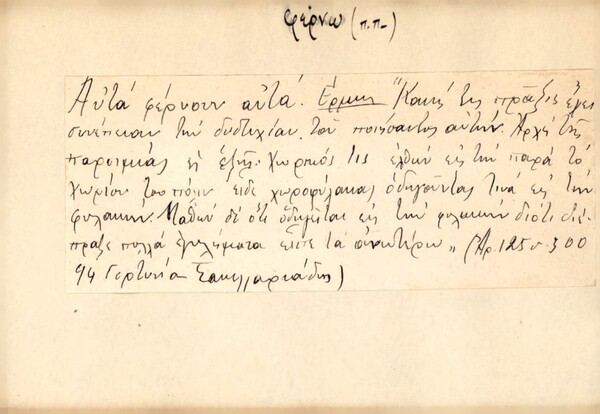 φέρνω (π.π.)
Αὐτά φέρνουν αὐτά. Ἑρμην. "Κακή τις πρᾶξις ἔχει
συνέπειαν τήν δυστυχίαν τοῦ ποιήσαντος αὐτήν. Ἀρχή τῆς
παροιμίας ἡ ἑξῆς. Χωρικός τις ἐλθών εἰς τήν παρά τό
χωρίον του πόλιν εἶδε χωροφύλακας ὁδηγοῦντας τινά εἰς τήν
φυλακήν. Μαθών δέ ὅτι ὁδηγεῖται εἰς τήν φυλακήν διότι διέ-
πραξε πολλά ἐγκλήματα εἶπε τά ἀνωτέρω" (Ἀρ. 125 σ. 300
94 Γορτυνία Σακελλαριάδης)